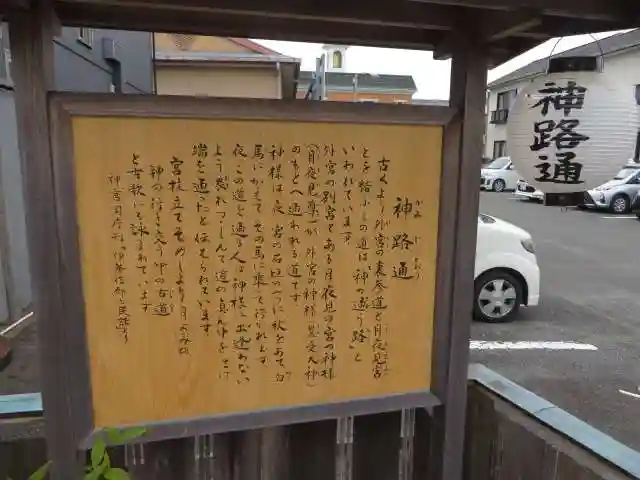 神路通
かみじどおり
古くより外宮の裏参道と月夜見宮
とを結ぶこの道は"神の通う路"と
いわれています。
外宮の別宮である月夜見の宮の神様
(月夜見尊)が、外宮の神様(豊受大神)
のもとへ通われる道です。
神様は夜、宮の石垣の一つに杖をあて、白
馬にかえて、その馬に乗って行かれます。
夜この道を通る人は神様にお逢いしない
よう恐れつつしんで道の真ん中をさけ
端を通ったと伝えられています。
宮柱立てそめしより月よみの
神の行き交う中の古道
と古歌にも詠まれています
神路通